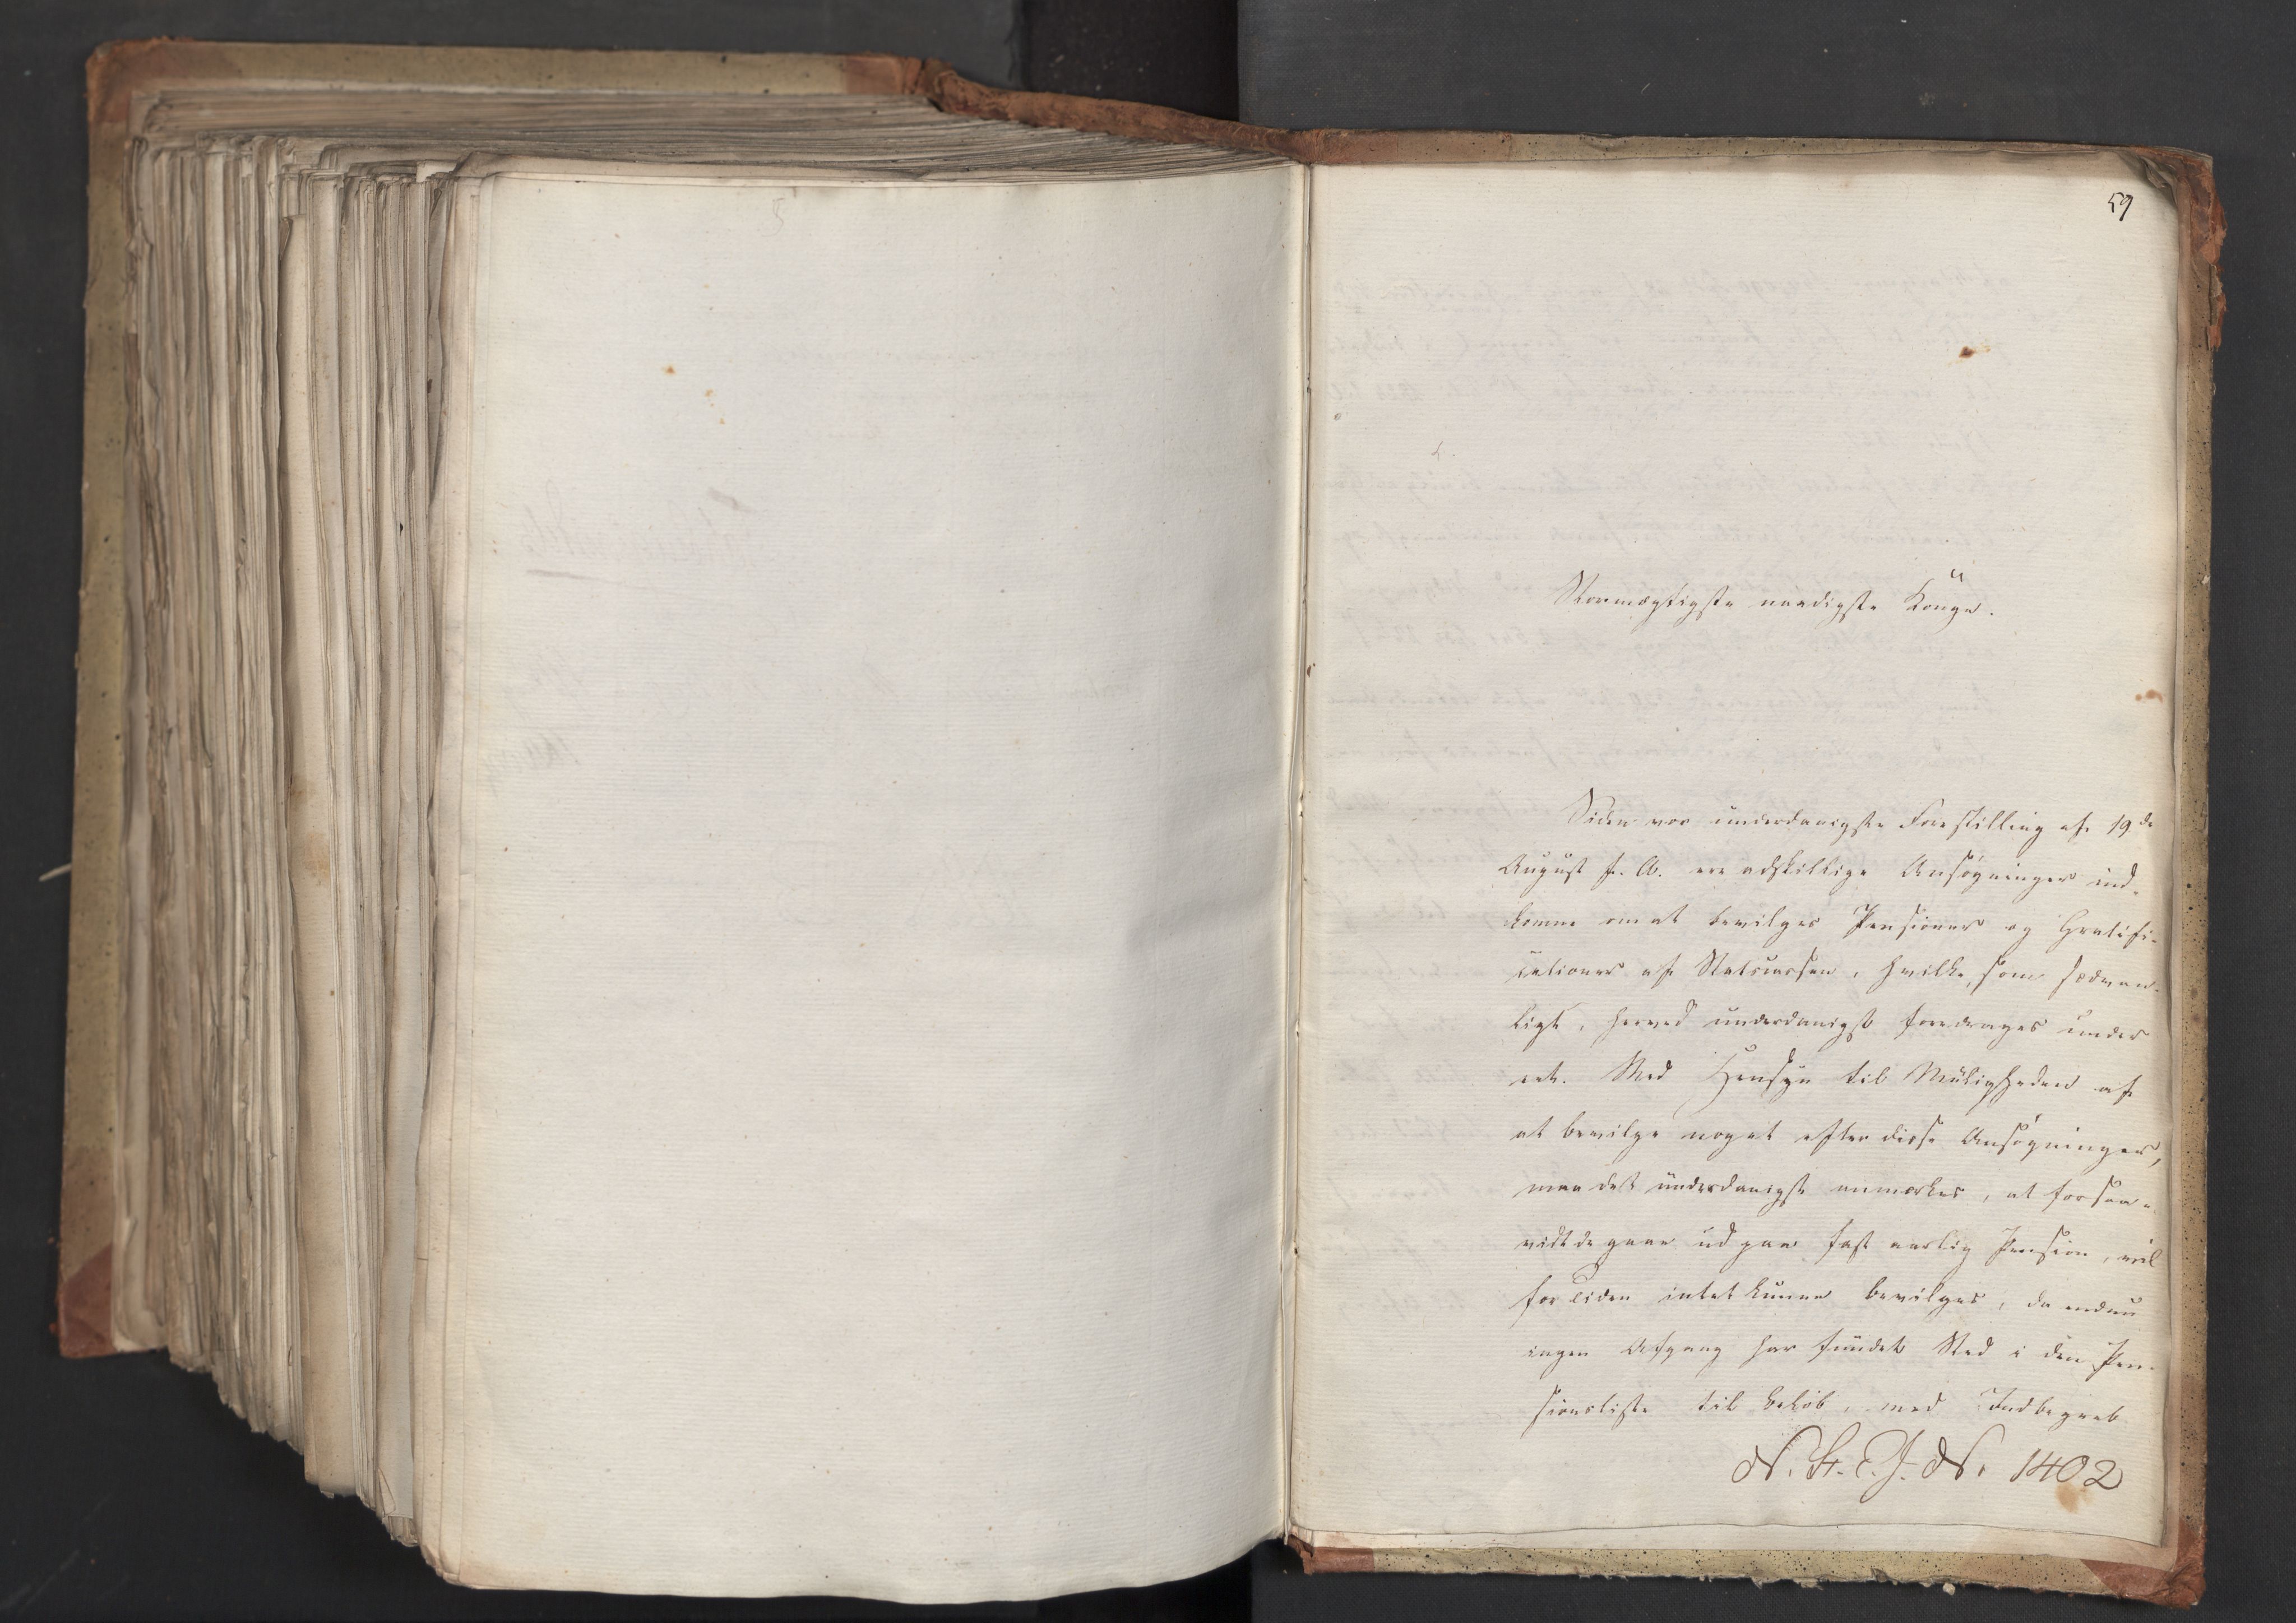 59
Stormægtigste naadigste Konge.
Siden vor underdanigste Forestilling af 19de
August f. A. ere adskillige Ansøgninger ind-
komne om at bevilges Pensioner og Gratifi-
cationer af Statscassen, hvilke, som sædvan-
ligt, herved underdanigst foredrages under
eet. Med Hensyn til Muligheden af
at bevilge noget efter disse Ansøgninger,
maa det underdanigst anmærkes, at forsaa-
vidt de gaae ud paa fast aarlig Pension, vil
for tiden intet kunne bevilges, da endnu
ingen Afgang har fundet Sted i den Pen-
sionsliste til Beløb, med Indbegreb
N. St. C. J. N. 1402